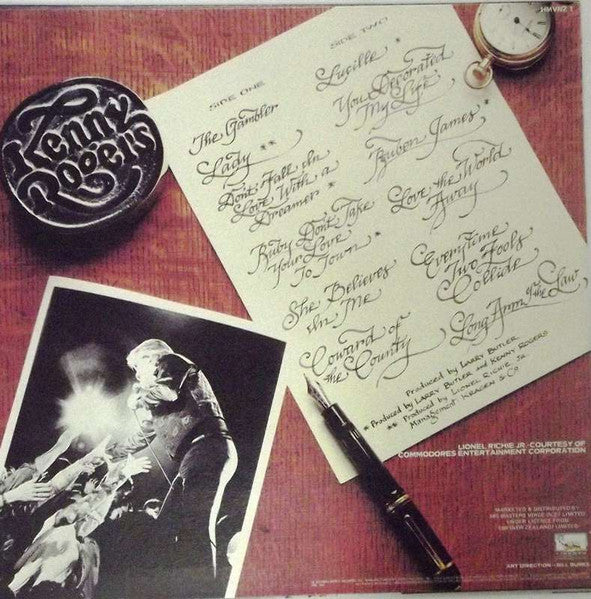 HMVNZ 1
Kenny
Rogers
SIDE ONE
The Gambler
Lady **
Don't Fall In
Love With a
Dreamer *
Ruby Don't Take
Your Love
To Town *
She Believes
In Me
Coward of
the County
SIDE TWO
Lucille
You Decorated
My Life
Reuben James *
Love the World
Away
Everytime
Two Fools
Collide
Long Arm of the Law
Produced by LARRY BUTLER
* Produced by LARRY BUTLER and KENNY ROGERS
** Produced by LIONEL RICHIE JR.
Management: KRAGEN & CO
LIONEL RICHIE JR.-COURTESY OF
COMMODORES ENTERTAINMENT CORPORATION
MARKETED & DISTRIBUTED BY
HIS MASTERS VOICE (NZ) LIMITED
UNDER LICENCE FROM
EMI (NEW ZEALAND) LIMITED
ART DIRECTION - BILL BURKS